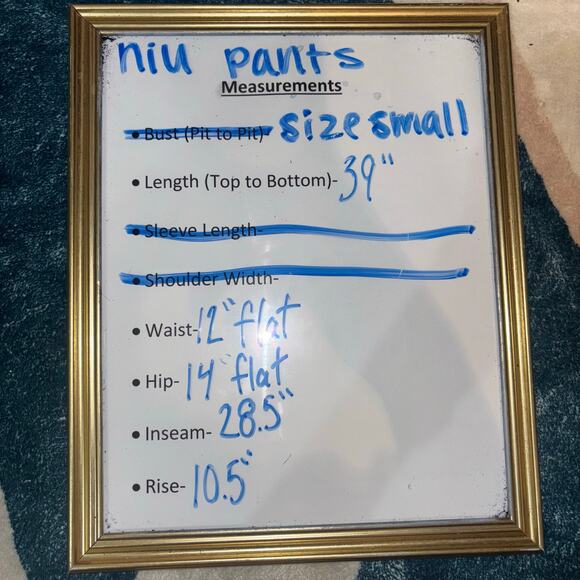 niu pants
Measurements
• Bust (Pit to Pit)- size small
• Length (Top to Bottom)- 39"
• Sleeve Length-
• Shoulder Width-
• Waist- 12" flat
• Hip- 14" flat
• Inseam- 28.5"
• Rise- 10.5"